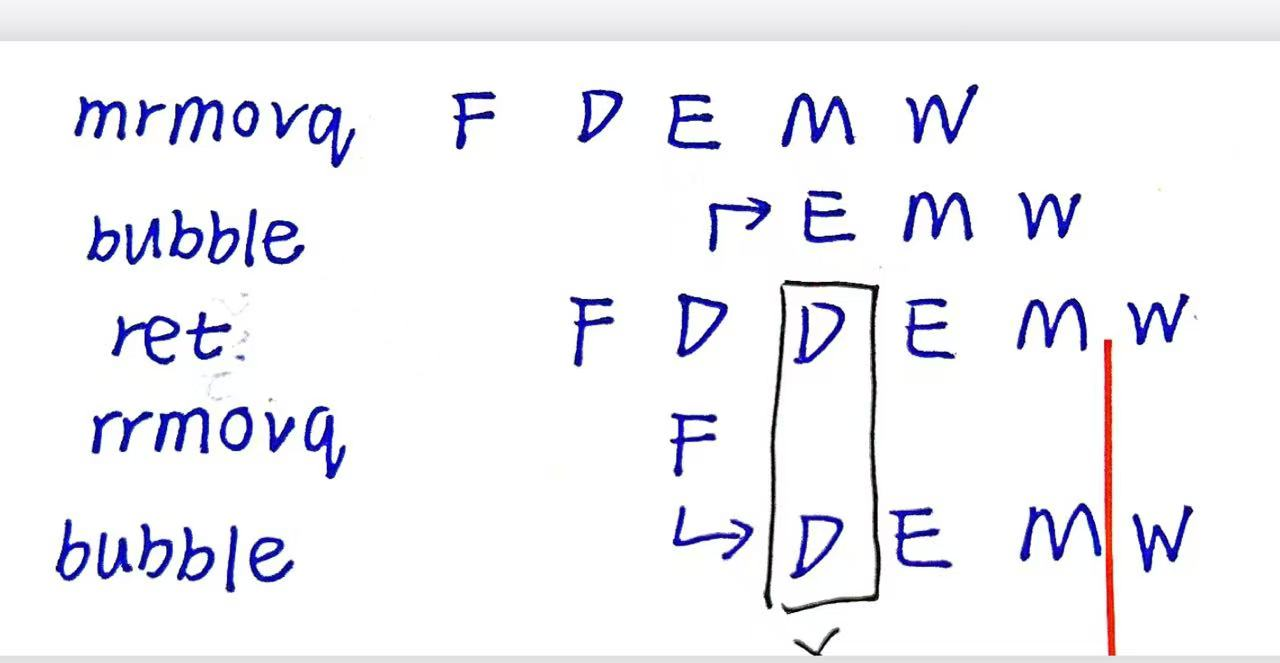 mrmovq F D E M W
bubble E M W
ret F D D E M W
rrmovq F
bubble D E M W